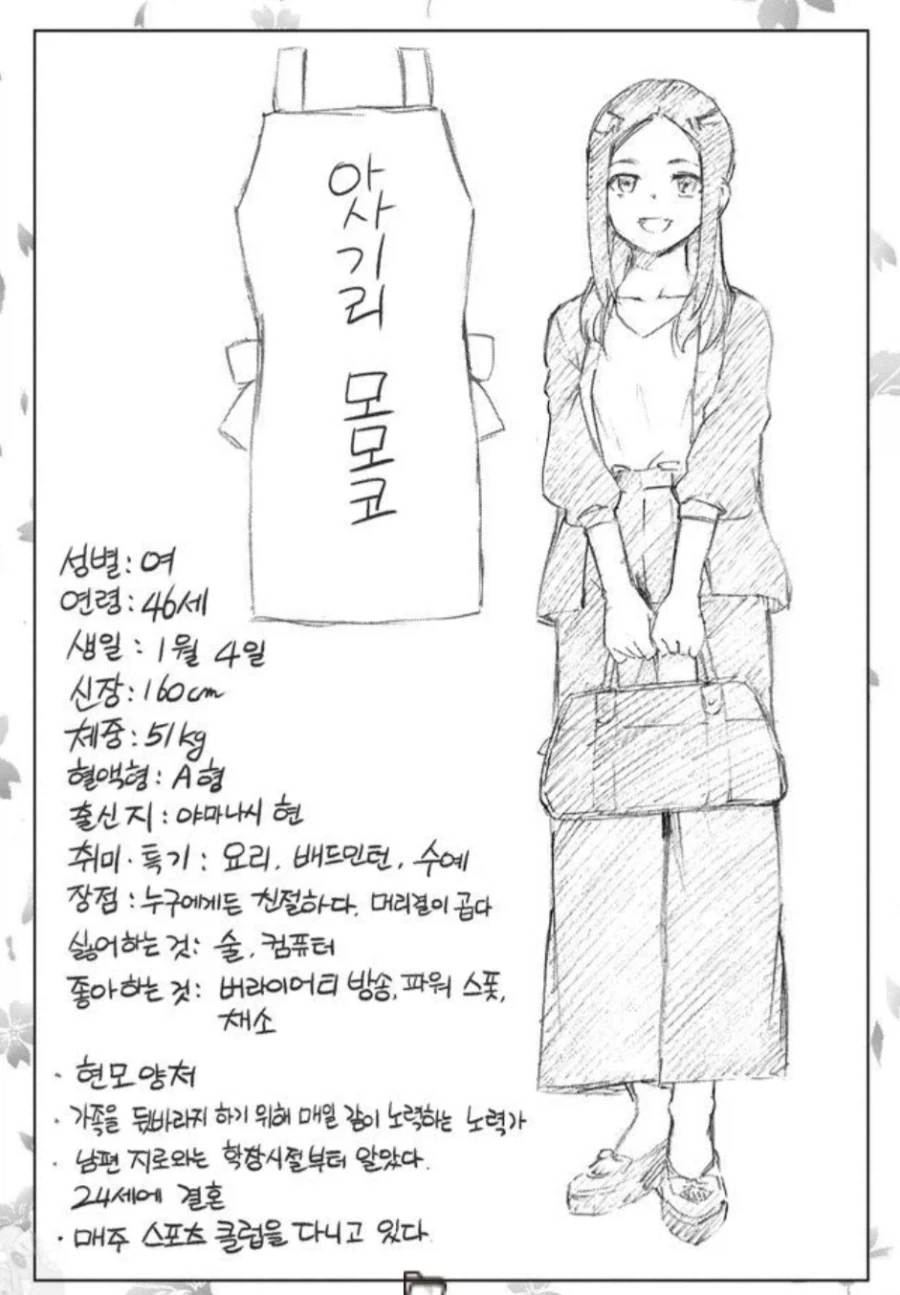 아사기리 모모코
성별: 여
연령: 46세
생일: 1월 4일
신장: 160cm
체중: 51kg
혈액형: A형
출신지: 야마나시 현
취미·특기: 요리, 배드민턴, 수예
장점: 누구에게든 친절하다. 머리결이 곱다
싫어하는 것: 술, 컴퓨터
좋아하는 것: 버라이어티 방송, 파워 스폿,
채소
· 현모양처
· 가족을 뒷바라지 하기 위해 매일 같이 노력하는 노력가
· 남편 지로와는 학창시절부터 알았다.
24세에 결혼
· 매주 스포츠 클럽을 다니고 있다.